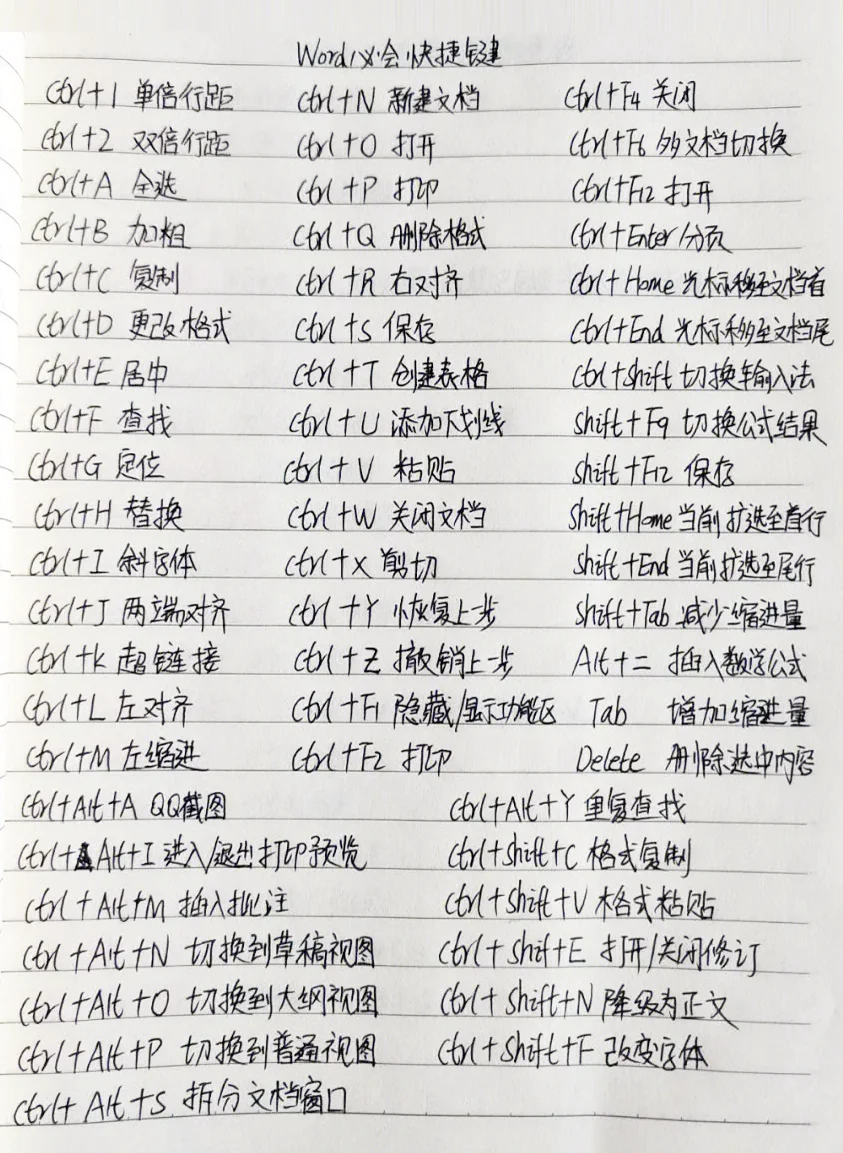 Word必会快捷键
Ctrl+1 单倍行距 Ctrl+N 新建文档 Ctrl+F4 关闭
Ctrl+2 双倍行距 Ctrl+O 打开 Ctrl+F6 多文档切换
Ctrl+A 全选 Ctrl+P 打印 Ctrl+F12 打开
Ctrl+B 加粗 Ctrl+Q 删除格式 Ctrl+Enter 分页
Ctrl+C 复制 Ctrl+R 右对齐 Ctrl+Home 光标移至文档首
Ctrl+D 更改格式 Ctrl+S 保存 Ctrl+End 光标移至文档尾
Ctrl+E 居中 Ctrl+T 创建表格 Ctrl+Shift 切换输入法
Ctrl+F 查找 Ctrl+U 添加下划线 Shift+F9 切换公式结果
Ctrl+G 定位 Ctrl+V 粘贴 Shift+F12 保存
Ctrl+H 替换 Ctrl+W 关闭文档 Shift+Home 当前扩选至首行
Ctrl+I 斜字体 Ctrl+X 剪切 Shift+End 当前扩选至尾行
Ctrl+J 两端对齐 Ctrl+Y 恢复上一步 Shift+Tab 减少缩进量
Ctrl+K 超链接 Ctrl+Z 撤销上一步 Alt+= 插入数学公式
Ctrl+L 左对齐 Ctrl+F1 隐藏/显示功能区 Tab 增加缩进量
Ctrl+M 左缩进 Ctrl+F2 打印 Delete 删除选中内容
Ctrl+Alt+A QQ截图 Ctrl+Alt+Y 重复查找
Ctrl+Alt+I 进入/退出打印预览 Ctrl+Shift+C 格式复制
Ctrl+Alt+M 插入批注 Ctrl+Shift+V 格式粘贴
Ctrl+Alt+N 切换到草稿视图 Ctrl+Shift+E 打开/关闭修订
Ctrl+Alt+O 切换到大纲视图 Ctrl+Shift+N 降级为正文
Ctrl+Alt+P 切换到普通视图 Ctrl+Shift+F 改变字体
Ctrl+Alt+S 拆分文档窗口